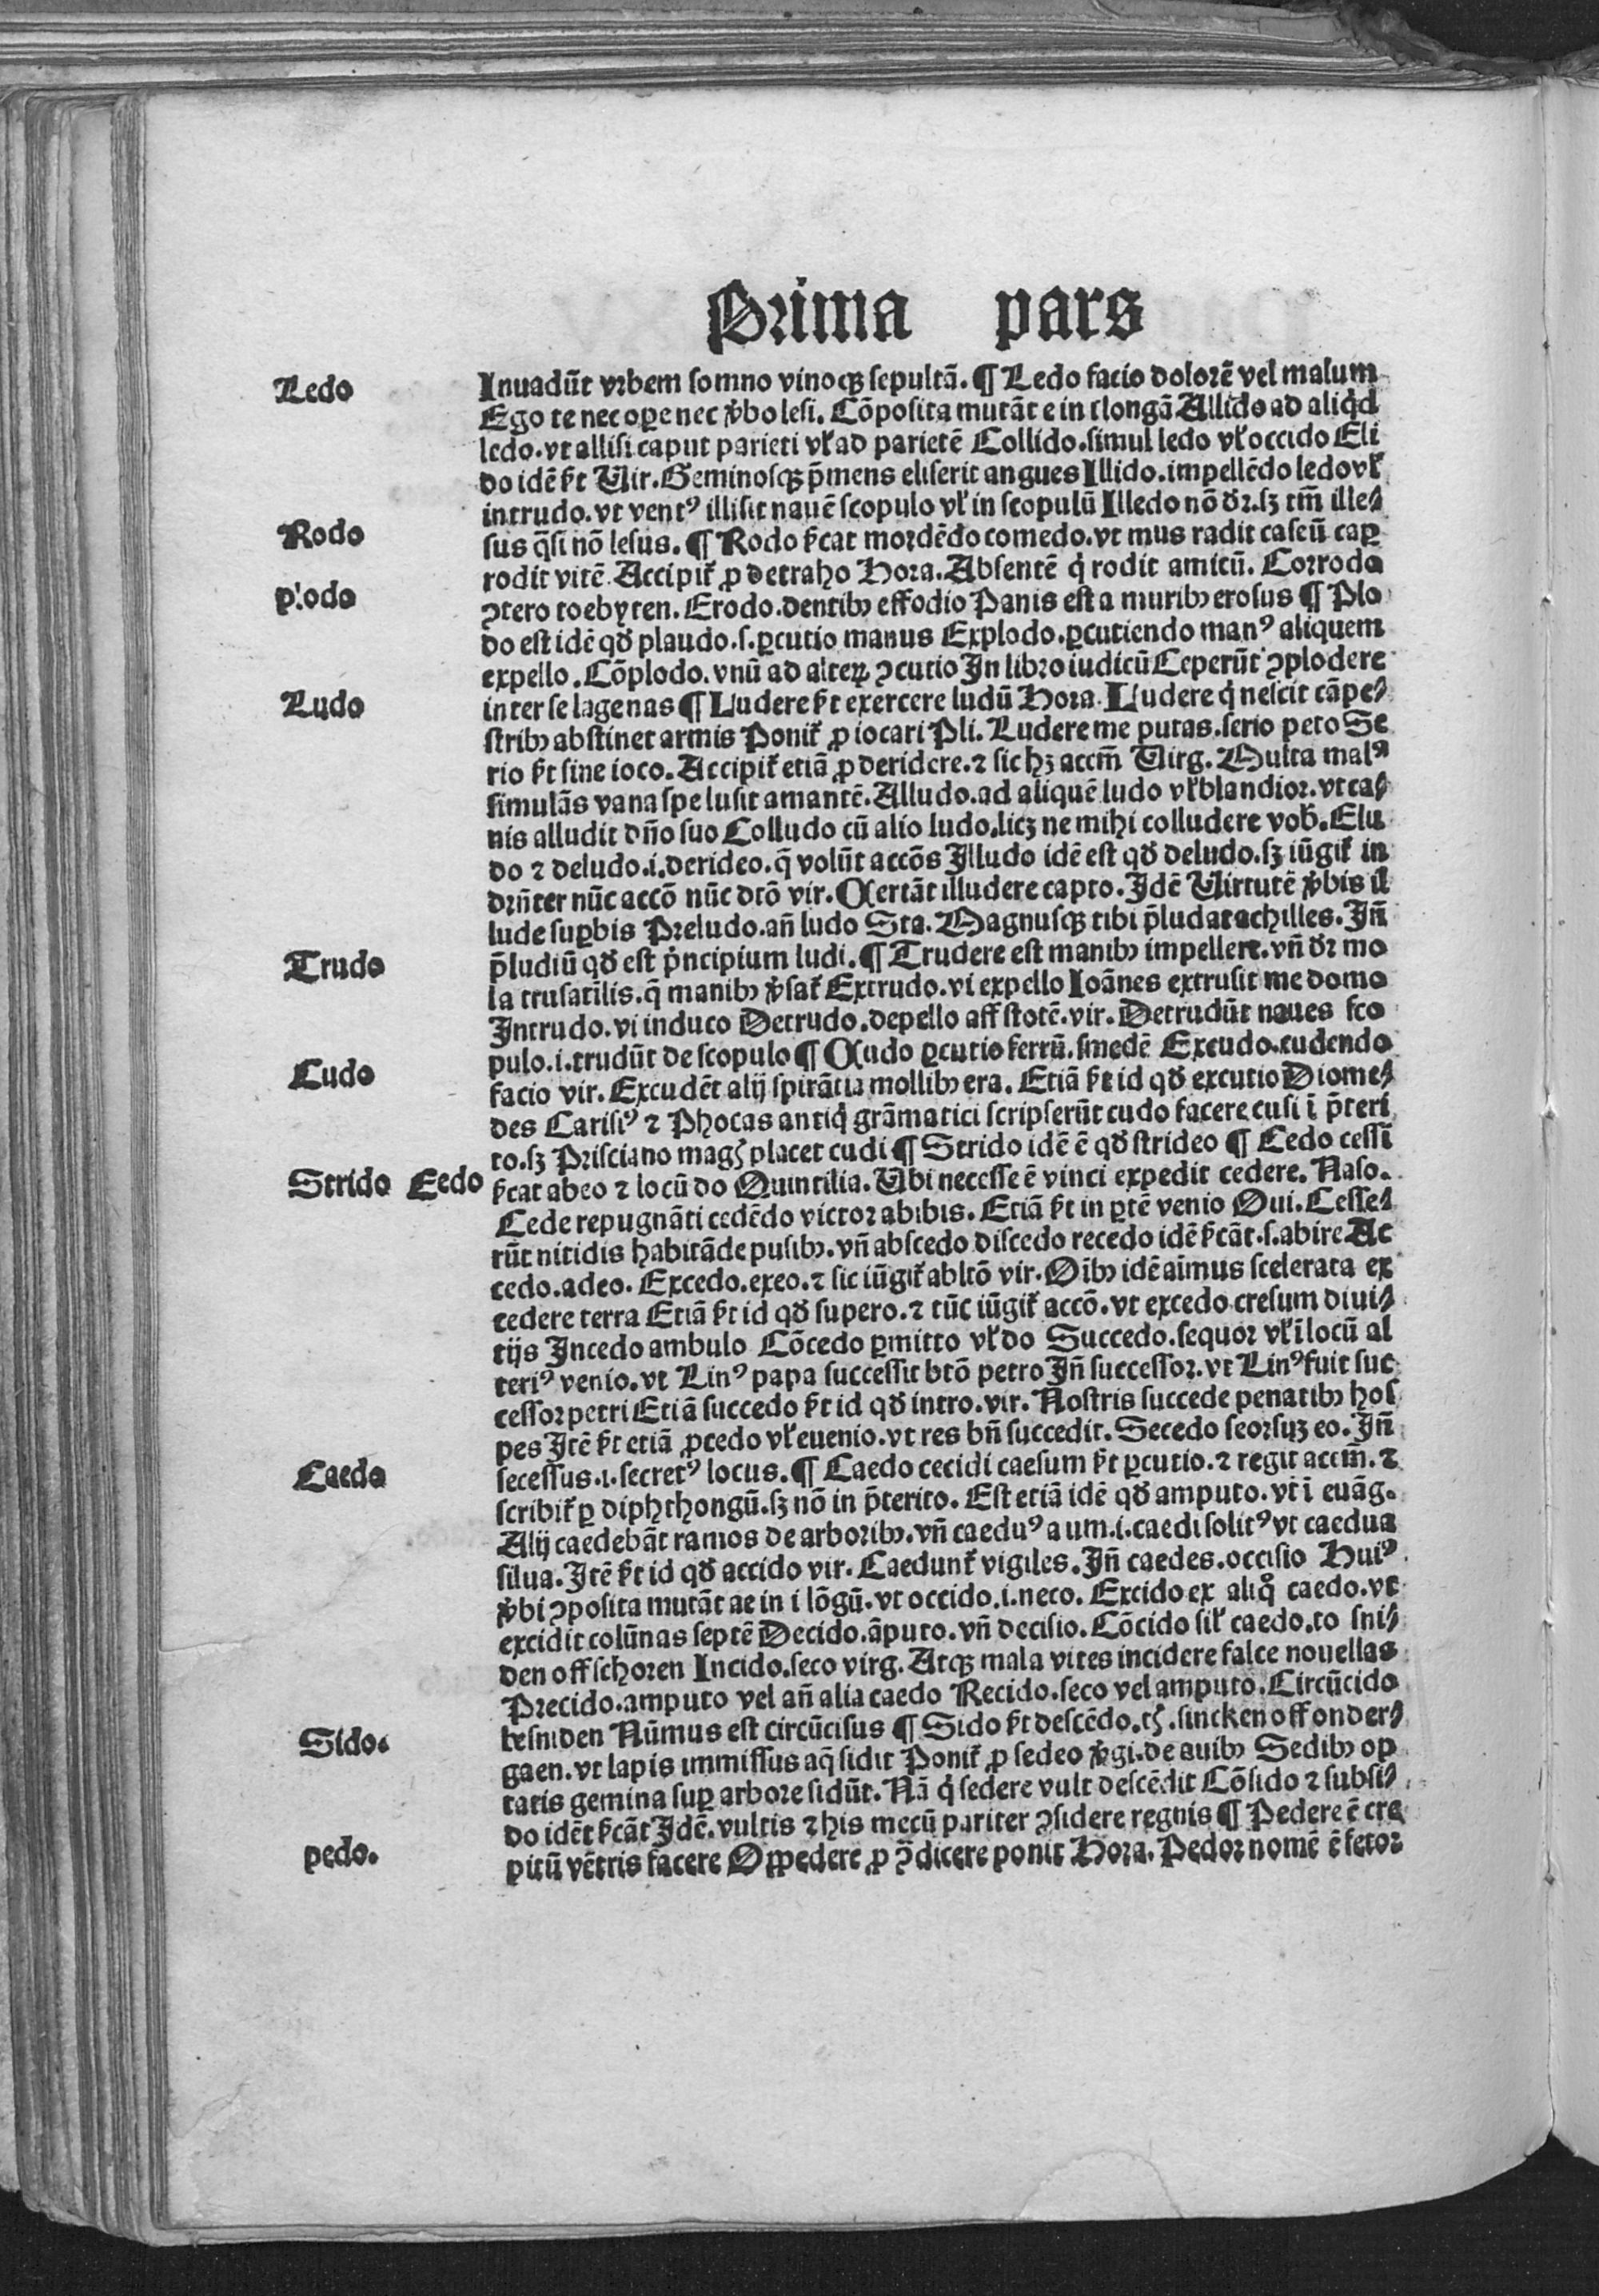 Prima pars
Ledo
Inuadūt vrbem somno vinoqꝫ sepultā. ¶ Ledo facio dolorē vel malum
Ego te nec oꝑe nec v̄bo lesi. Cōposita mutāt e in i longā Allido ad aliqd
ledo. vt allisi caput parieti vł ad parietē Collido. simul ledo vł occido Eli
do idē ſt Uir. Geminosqꝫ p̄mens eliserit angues Illido. impellēdo ledo vł
intrudo. vt ventꝰ illisit nauē scopulo vł in scopulū Illedo nō dr̄. sꝫ tm̄ ille⸗
Rodo
sus q̄si nō lesus. ¶ Rodo ſcat mordēdo comedo. vt mus radit caseū caꝑ
rodit vitē Accipit̄ ꝓ detraho Hora. Absentē q̇ rodit amicū. Corrodo
plodo
ꝯtero toebyten. Erodo. dentibꝫ effodio Panis est a muribꝫ erosus ¶ Plo
do est idē qđ plaudo. s. ꝑcutio manus Explodo. ꝑcutiendo manꝰ aliquem
expello. Cōplodo. vnū ad alteꝝ ꝯcutio In libro iudicū Ceperūt ꝯplodere
Ludo
inter se lagenas ¶ Ludere ſt exercere ludū Hora. Ludere q̇ nescit cāpe⸗
stribꝫ abstinet armis Ponit̄ ꝓ iocari Pli. Ludere me putas. serio peto Se
rio ſt sine ioco. Accipit̄ etiā ꝓ deridere. ⁊ sic hꝫ accm̄ Uirg. Multa malꝰ
simulās vana spe lusit amantē. Alludo. ad aliquē ludo vł blandior. vt ca⸗
nis alludit dn̄o suo Colludo cū alio ludo. licꝫ ne mihi colludere vob̄. Elu
do ⁊ deludo. i. derideo. q̄ volūt accōs Illudo idē est qđ deludo. sꝫ iūgit̄ in
drn̄ter nūc accō nūc dtō vir. Certāt illudere capto. Idē Uirtutē v̄bis il
lude suꝑbis Preludo. an̄ ludo Sta. Magnusqꝫ tibi p̄ludat achilles. In̄
Trudo
p̄ludiū qđ est p̄ncipium ludi. ¶ Trudere est manibꝫ impellere. vn̄ dr̄ mo
la trusatilis. q̄ manibꝫ v̄sat̄ Extrudo. vi expello Ioānes extrusit me domo
Intrudo. vi induco Detrudo. depello aff stotē. vir. Detrudūt naues sco
Cudo
pulo. i. trudūt de scopulo ¶ Cudo ꝑcutio ferrū. smedē Excudo. cudendo
facio vir. Excudēt alij spirātia mollibꝫ era. Etiā ſt id qđ excutio Diome⸗
des Carisiꝰ ⁊ Phocas antiq̇ grāmatici scripserūt cudo facere cusi ī p̄teri
to. sꝫ Prisciano magꝭ placet cudi ¶ Strido idē ē qđ strideo ¶ Cedo cessi
Strido Cedo
ſcat abeo ⁊ locū do Quintilia. Ubi necesse ē vinci expedit cedere. Naso.
Cede repugnāti cedēdo victor abibis. Etiā ſt in ꝑtē venio Oui. Cesse⸗
rūt nitidis habitāde pisibꝫ. vn̄ abscedo discedo recedo idē ſcāt. s. abire Ac
cedo. adeo. Excedo. exeo. ⁊ sic iūgit̄ abltō vir. Oībꝫ idē aīmus scelerata ex
cedere terra Etiā ſt id qđ supero. ⁊ tūc iūgit̄ accō. vt excedo cresum diui⸗
tijs Incedo ambulo Cōcedo ꝑmitto vł do Succedo. sequor vł ī locū al
teriꝰ venio. vt Linꝰ papa successit btō petro In̄ successor. vt Linꝰ fuit suc
cessor petri Etiā succedo ſt id qđ intro. vir. Nostris succede penatibꝫ hos
pes Itē ſt etiā ꝓcedo vł euenio. vt res bn̄ succedit. Secedo seorsuꝫ eo. In̄
Caedo
secessus. i. secretꝰ locus. ¶ Caedo cecidi caesum ſt ꝑcutio. ⁊ regit accm̄. ⁊
scribit̄ ꝑ diphthongū. sꝫ nō in p̄terito. Est etiā idē qđ amputo. vt ī euāg.
Alij caedebāt ramos de arboribꝫ. vn̄ caeduꝰ a um. i. caedi solitꝰ vt caedua
silua. Itē ſt id qđ accido vir. Caedunt̄ vigiles. In̄ caedes. occisio Huiꝰ
v̄bi ꝯposita mutāt ae in i lōgū. vt occido. i. neco. Excido ex aliq̊ caedo. vt
excidit colūnas septē Decido. āputo. vn̄ decisio. Cōcido sił caedo. to sni⸗
den off schoren Incido. seco virg. Atqꝫ mala vites incidere falce nouellas
Precido. amputo vel an̄ alia caedo Recido. seco vel amputo. Circūcido
Sido.
besniden Nūmus est circūcisus ¶ Sido ſt descēdo. tꝭ. sincken off onder⸗
gaen. vt lapis immissus aq̄ sidit Ponit̄ ꝓ sedeo v̄gi. de auibꝫ Sedibꝫ op
tatis gemina suꝑ arbore sidūt. Nā q̇ sedere vult descēdit Cōsido ⁊ subsi⸗
do idēt ſcāt Idē. vultis ⁊ his mecū pariter ꝯsidere regnis ¶ Pedere ē cre
pedo.
pitū vētris facere Oppedere ꝓ ꝯ̄dicere ponit Hora. Pedor nomē ē fetor